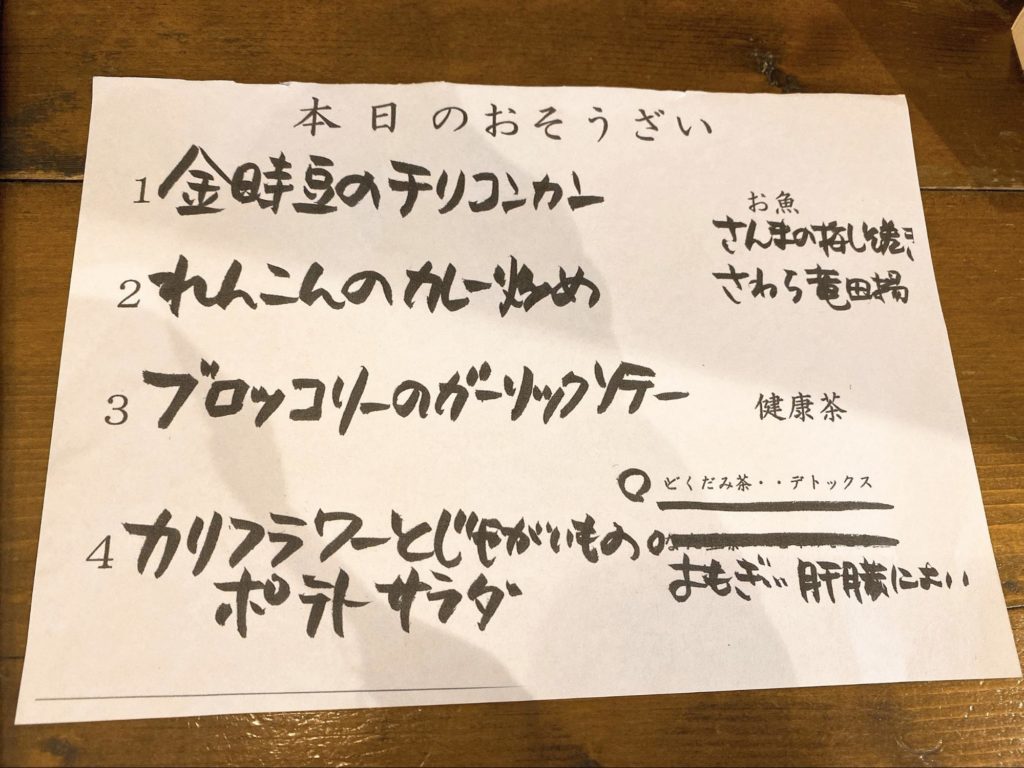 本日のおそうざい
1 金時豆のチリコンカン
2 れんこんのカレー炒め
3 ブロッコリーのガーリックソテー
4 カリフラワーとじゃがいもの
ポテトサラダ
お魚
さんまの梅しそ焼き
さわら竜田揚
健康茶
どくだみ茶・・デトックス
よもぎ 肝臓によい